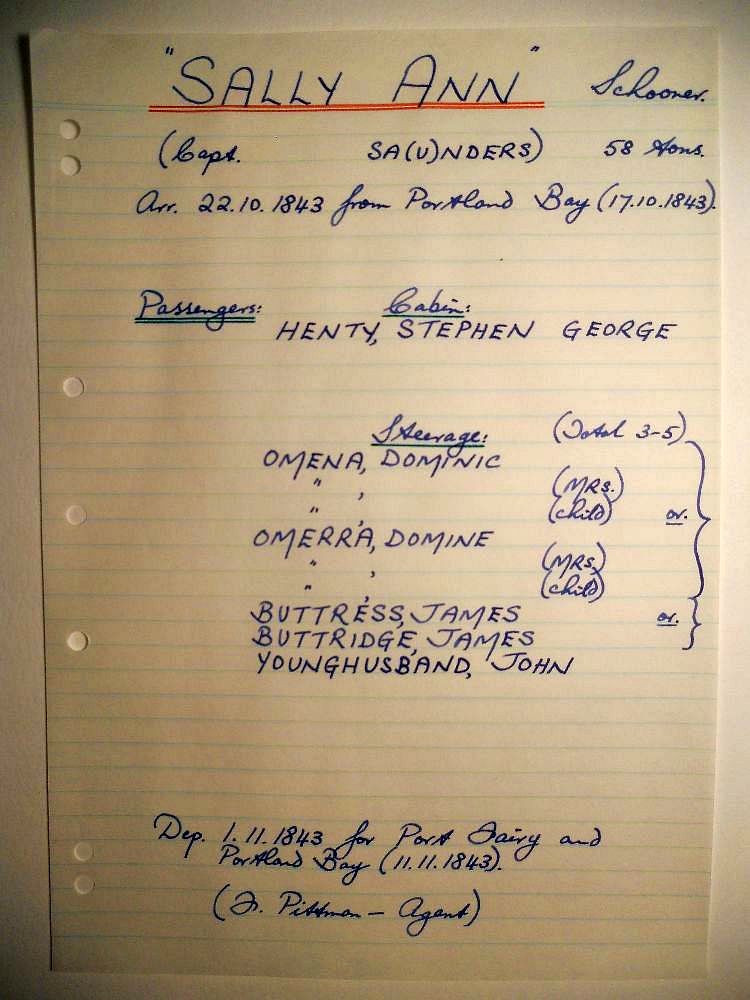 "SALLY ANN" Schooner.
(Capt. SA(U)NDERS) 58 tons.
Arr. 22.10.1843 from Portland Bay (17.10.1843).
Passengers: Cabin:
HENTY, STEPHEN GEORGE
Steerage: (Total 3-5)
OMENA, DOMINIC
" , (MRS.)
" , (child) or.
OMERRA, DOMINE
" , (MRS.)
" , (child)
BUTTRESS, JAMES or.
BUTTRIDGE, JAMES
YOUNGHUSBAND, JOHN
Dep. 1.11.1843 for Port Fairy and
Portland Bay (11.11.1843).
(F. Pittman - Agent)